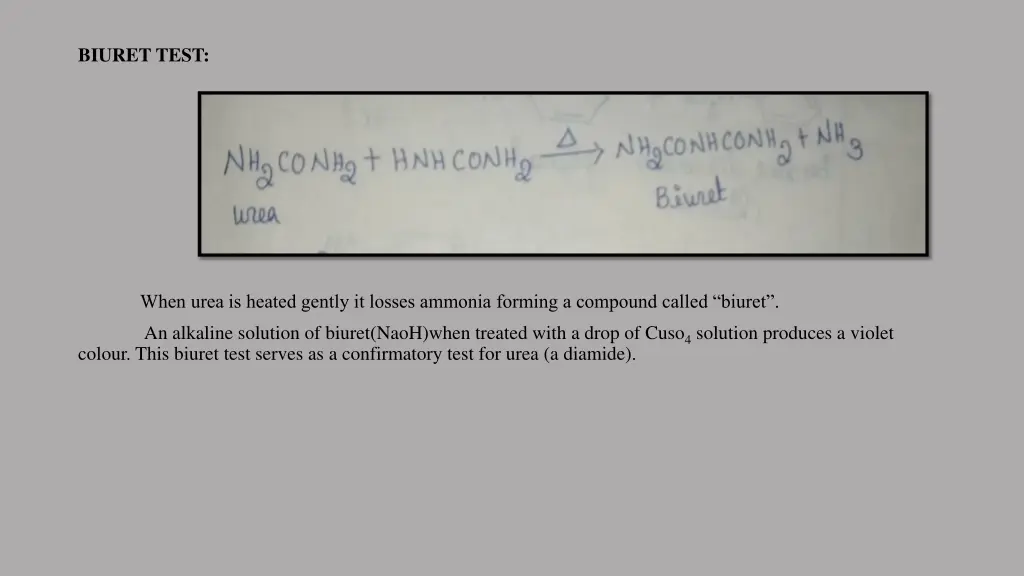 BIURET TEST:
NH₂CONH₂ + HNHCONH₂ —Δ→ NH₂CONHCONH₂ + NH₃
urea Biuret
When urea is heated gently it losses ammonia forming a compound called “biuret”.
An alkaline solution of biuret(NaoH)when treated with a drop of Cuso₄ solution produces a violet
colour. This biuret test serves as a confirmatory test for urea (a diamide).